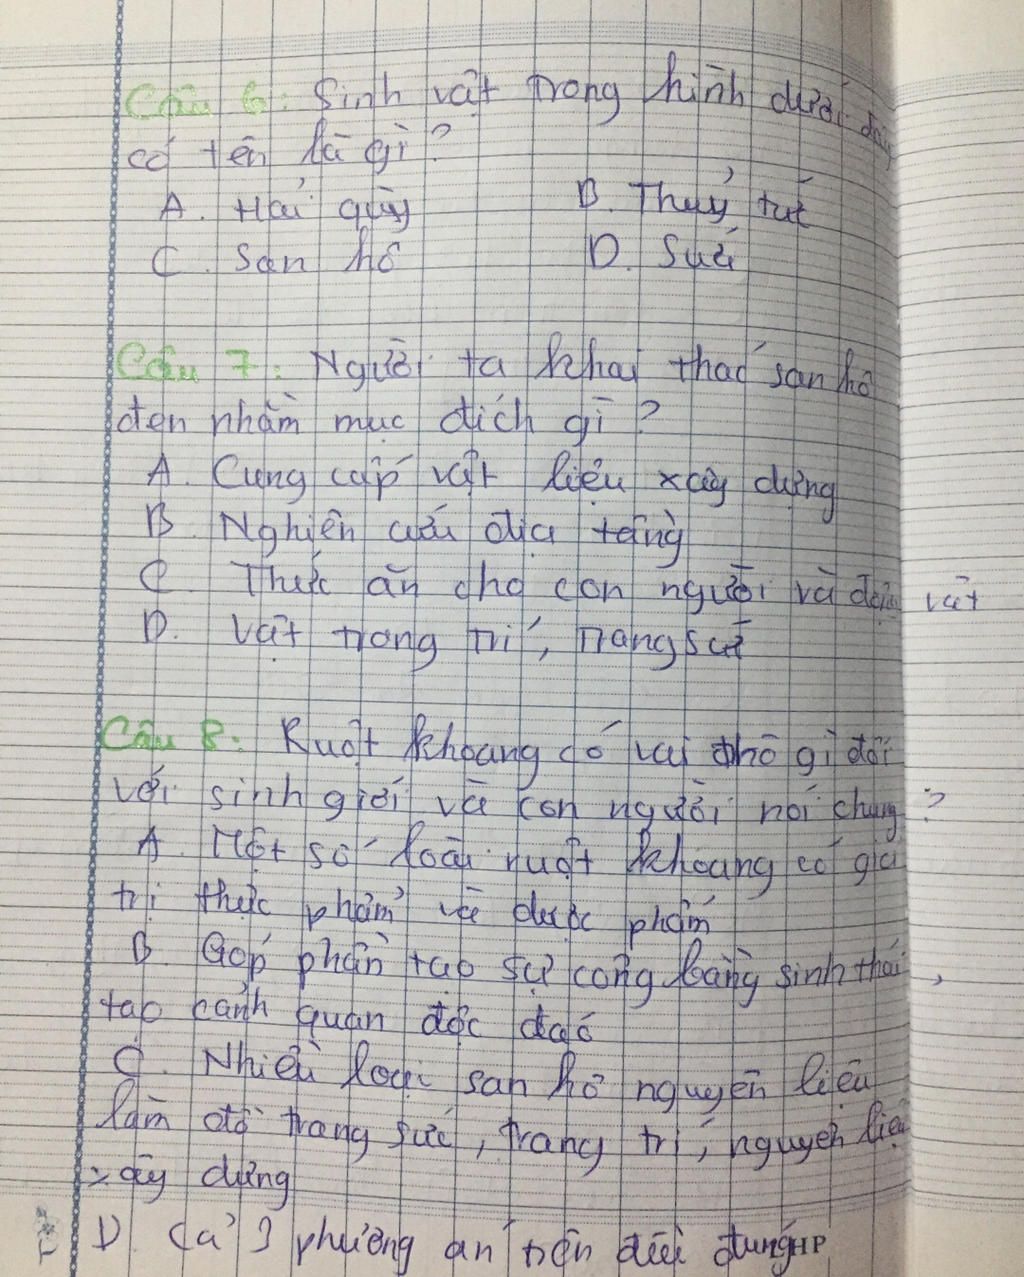 Câu 6: Sinh vật trong hình dưới đây
có tên là gì?
A. Hải quỳ B. Thuỷ tức
C. San hô D. Sứa
Câu 7: Người ta khai thác san hô
đen nhằm mục đích gì?
A. Cung cấp vật liệu xây dựng
B. Nghiên cứu địa tầng
C. Thức ăn cho con người và động vật
D. Vật trang trí, trang sức
Câu 8: Ruột khoang có vai trò gì đối
với sinh giới và con người nói chung?
A. Một số loài ruột khoang có giá
trị thực phẩm và dược phẩm
B. Góp phần tạo sự công bằng sinh thái,
tạo cảnh quan độc đáo
C. Nhiều loại san hô nguyên liệu
làm đồ trang sức, trang trí, nguyên liệu
xây dựng
D. Cả 3 phương án trên đều đúng
HP